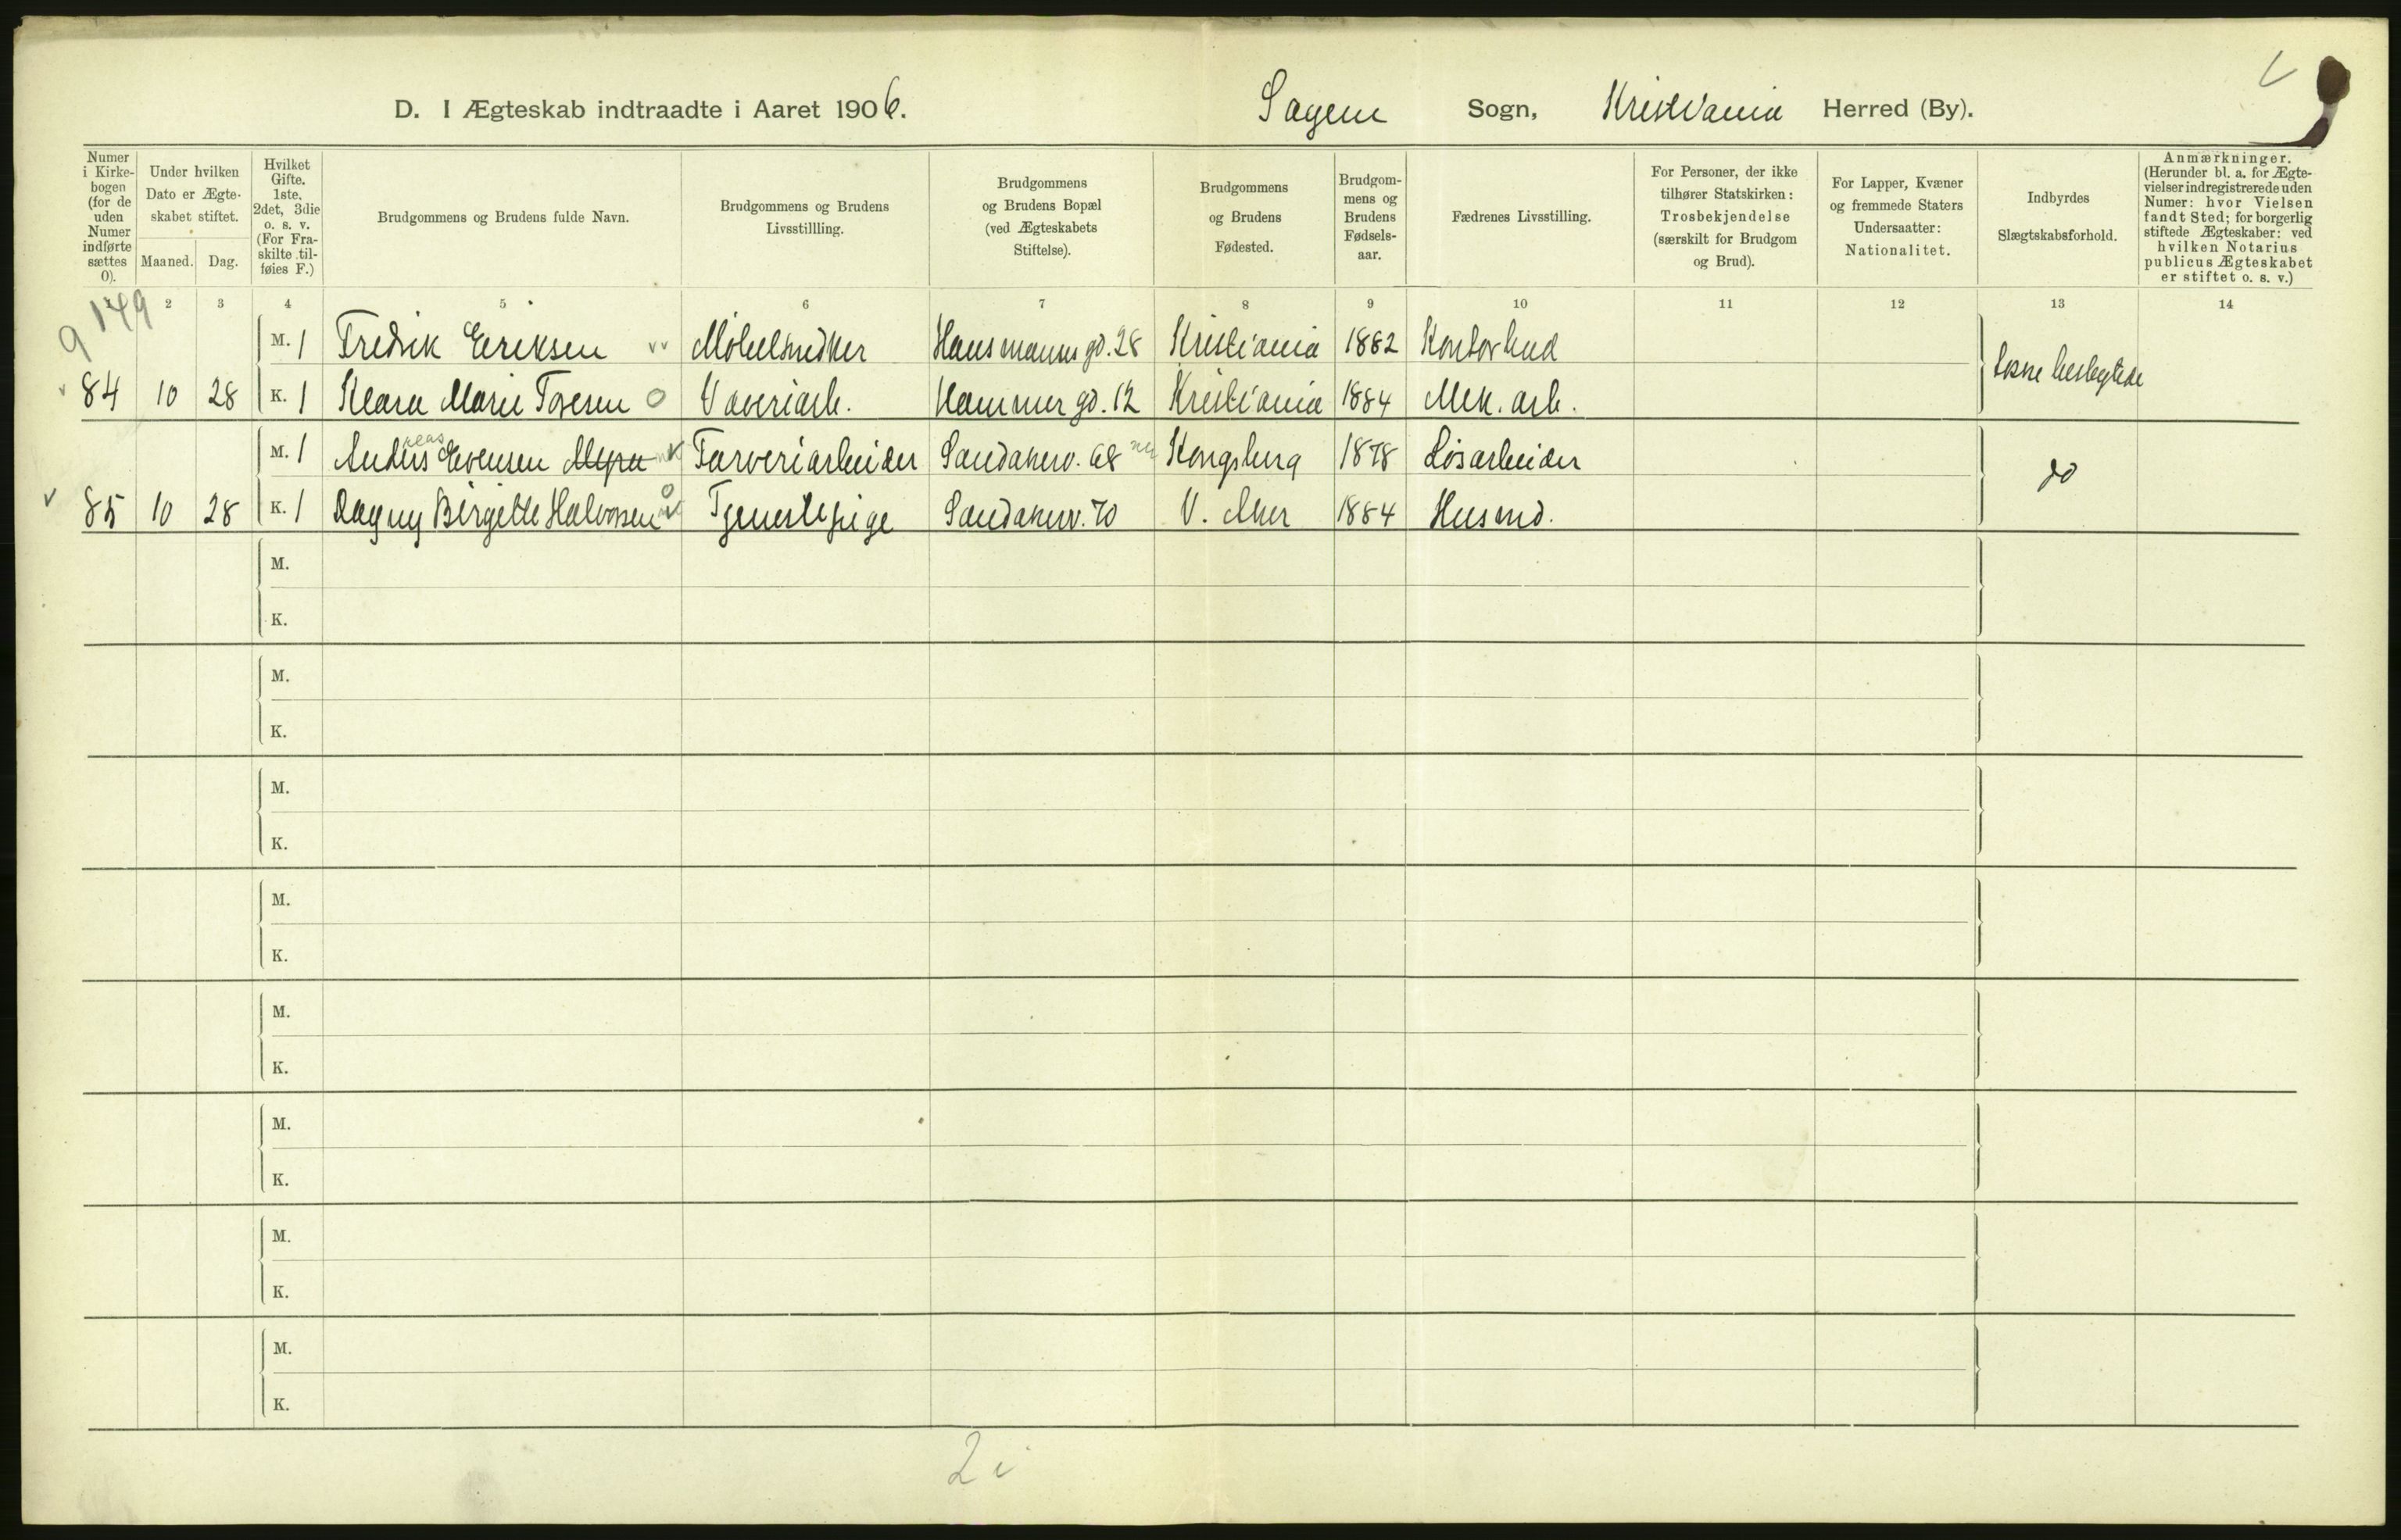 D. I Ægteskab indtraadte i Aaret 1906. Sagene Sogn, Kristiania Herred (By).
Numer i Kirkebogen (for de uden Numer indførte sættes 0).
Under hvilken Dato er Ægteskabet stiftet.
Maaned. Dag.
Hvilket Gifte. 1ste, 2det, 3die o. s. v. (For Fraskilte tilføies F.)
Brudgommens og Brudens fulde Navn.
Brudgommens og Brudens Livsstillling.
Brudgommens og Brudens Bopæl (ved Ægteskabets Stiftelse).
Brudgommens og Brudens Fødested.
Brudgommens og Brudens Fødselsaar.
Fædrenes Livsstilling.
For Personer, der ikke tilhører Statskirken: Trosbekjendelse (særskilt for Brudgom og Brud).
For Lapper, Kvæner og fremmede Staters Undersaatter: Nationalitet.
Indbyrdes Slægtskabsforhold.
Anmærkninger. (Herunder bl. a. for Ægtevielser indregistrerede uden Numer: hvor Vielsen fandt Sted; for borgerlig stiftede Ægteskaber: ved hvilken Notarius publicus Ægteskabet er stiftet o. s. v.)
2 3 4 5 6 7 8 9 10 11 12 13 14
9 149
M. 1 Fredrik Eriksen Møbelsnedker Hausmanns gd. 28 Kristiania 1882 Kontorbud
84 10 28 K. 1 Klara Marie Toresen Væveriarb. Hammer gd. 12 Kristiania 1884 Mek. arb.
M. 1 Anders Evensen Myra Farveriarbeider Sandakerv. 68 Kongsberg 1878 Løsarbeider
do
85 10 28 K. 1 Dagny Birgitte Halvorsen Tjenestepige Sandakerv. 70 V. Aker 1884 Husmd.
M.
K.
M.
K.
M.
K.
M.
K.
M.
K.
M.
K.
M.
K.
M.
K.
2